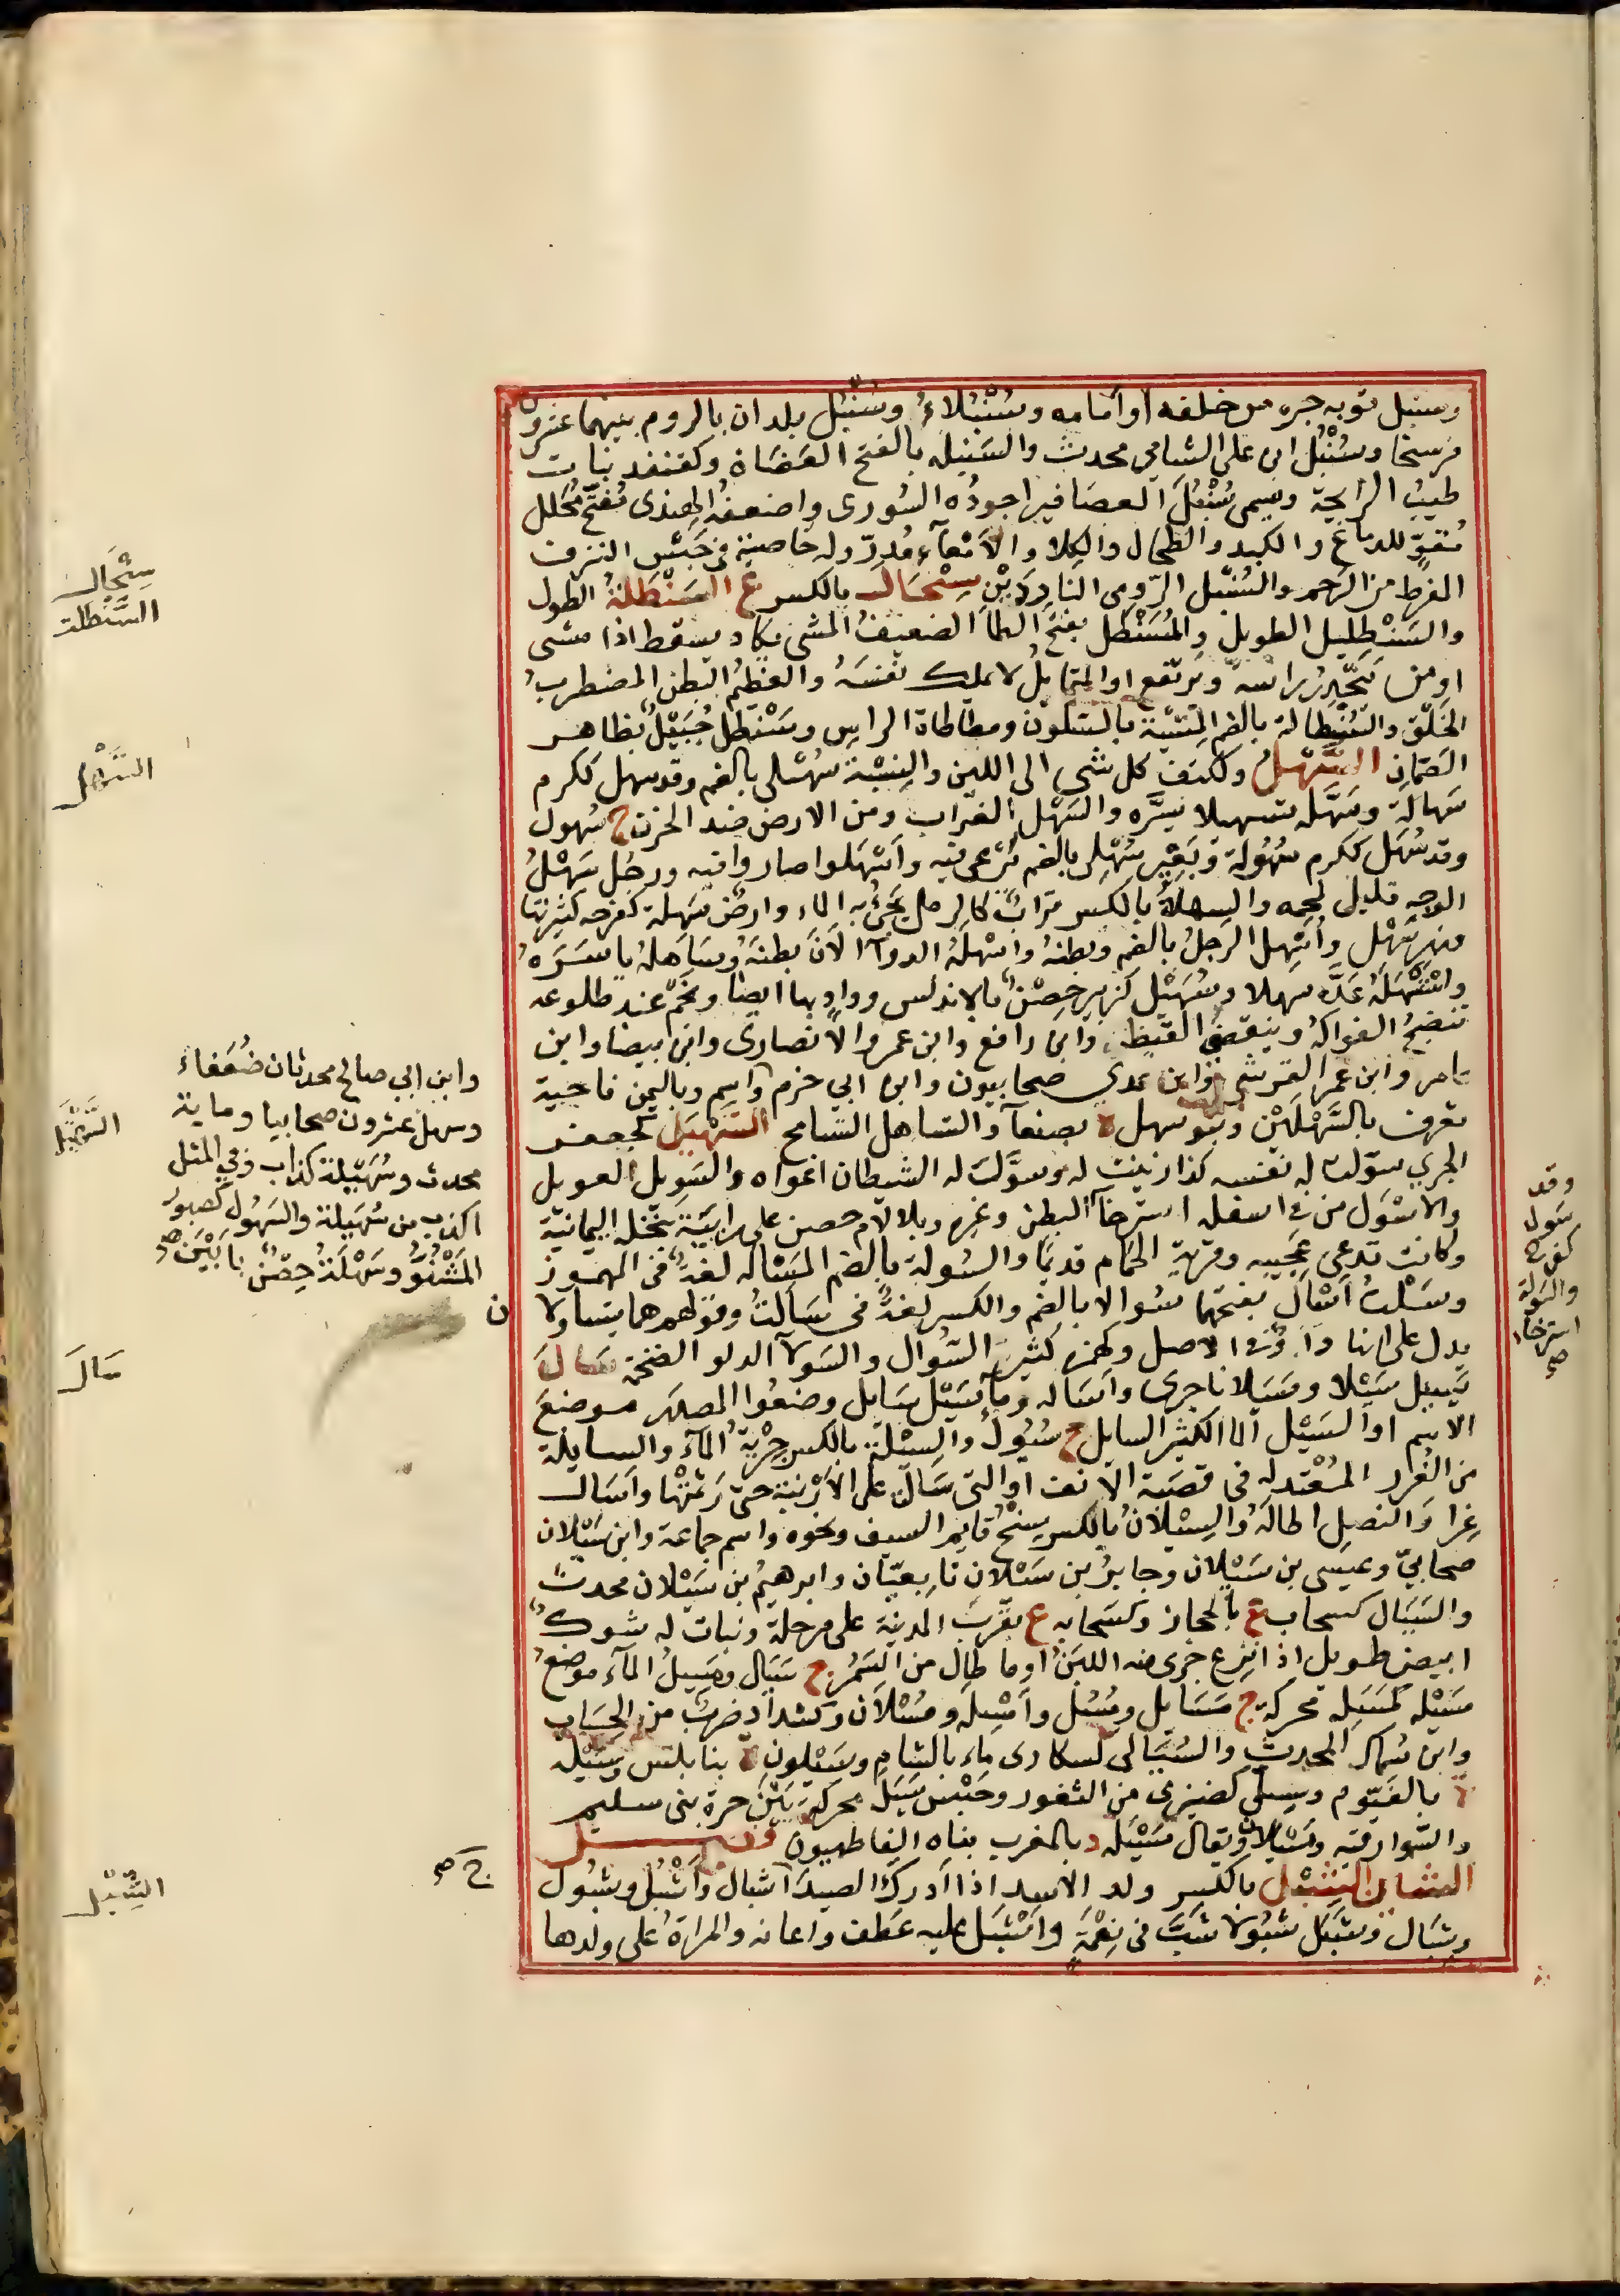 وسنبل ثوبه جره من خلفه او امامه وسُنْبُلاءُ وسُنْبُل بلدان بالروم بينهما عشرون
فرسخا وسُنْبُل ابن علي الشامي محدث والسَنْبله بالفتح العضاة وكقنفد نبات
طيب الرايحة ويسمى سُنْبُلَ العصافير اجودُه السُورى واضعفُه الهندى مُفتّح مُحلل
مُقوٍّ للدماغ والكبد والطحال والكلا والامْعآء مُدِرّ وله خاصية فى حَبْس النزف
المفرط من الرحم والسُنبل الرّومى النارِدَيْن سِنْجَال بالكسر ع السَنْطَلةُ الطول
والسَنْطلِيل الطويل والمُسَنْطَل بفتح الطاء الضعيفُ المشى يكاد يسقط اذا مشى
او من يَتحّدر براسه ويرتفع او المتمايل لا يملك نَفْسَهُ والعظيْمُ البطن المضطربُ
الخَلْق والسُنْطالة بالضم المِشْيَة بالسكون ومطاطاة الراس وسَنْطل جُبَيْل بظاهر
الصّمّان السَّهْلُ وككتف كل شى الى اللين والنِسْبَة سُهْلى بالضم وقد سهل ككرم
سَهالَةً وسَهَّله تسهيلا يَسَّره والسَهْل الغراب ومن الارض ضد الحزن ج سُهول
وقد سُهَل ككرم سُهُولة وبَعِير سُهْلى بالضم يَرْعى فيه واَسْهَلوا صاروا فيه ورجُل سَهْلُ
الوجه قليل لحمه والسِهْلَةُ بالكسر تراب كالرمل يَجئُ به الماء وارض سَهلة كفرحه كثيرتها
ونهر سَهْل واُسْهِل الرَجلُ بالضم وبطنهُ واسْهَلَهُ الدوآ الاَنَ بطنَه وسَاهَلهُ ياسَرَهُ
واسْتَسْهَلهُ عَدَّه سهلا وسُهَيْل كزبير حِصْن بالاندلس ووادٍ بها ايضا ونَجْم عند طلوعه
تَنْضجُ الفواكهُ وينقضى القيظ وابن رافع وابن عمرو الانصارى وابن بيضا وابن
عامر وابن عمر القرشى وابن عدي صحابيون وابن ابي حزم واسم وباليمن ناحية
تعرف بالسَّهْلَيْن وبنو سهل ة بصنعآ والتساهل التسامح السَّهْبَل كجعفر
الجري سوّلت له نفسه كذا زينت له وسوّلت له الشيطان اغواه والسَوِيل العويل
والاسْوَل من فى اسفله استرخآ البطن وغيره وبلالام حصن على رابيَة بنَخْلة اليمانيّة
وكانت تدعى عَجيبه وقرية الحمام قديمًا والسُولة بالضم المَسْاله لغة فى المهموز
وسَلْتُ اَسَال بفتحها سُوالا بالضم والكسر لغة فى سَاَلتُ وقولهم هما يتساولان
يدل على انها واو فى الاصل وكهمزه كثير السُوال والسَولآ الدلو الضخمة سَالَ
يَسِيل سَيْلا وسَيَلانا جرى واَسَاله ومآ سَيْل سَايل وضعُوا المصدر موضعَ
الاسم او السَيْل الما الكثير السايل ج سُيُول والسِيْلة بالكسر جِرْيةُ المآء والسايلة
من الغُرر المُعْتدله فى قصَبة الانف او التى سَالَت على الاَرْنبة حتى رَثمتها واَسَال
غِرارَ النصلِ اطالَهُ والسِيْلانُ بالكسر سِنْخُ قايم السيف ونحوه واسم جماعة وابن سَيْلان
صحابيّ وعيسى بن سَيْلان وجابرُ بن سَيْلان تابعيّان وابرهيم بن سَيْلان محدث
والسَيَال كسحاب ع بالحجاز وكسَحابه ع بقُرْبِ المدينة على مرحلة ونبات له شوك
ابيض طويل اذا نزع جرى منه اللبَنُ او ما طال من السَمُر ج سَيَال ومَسِيلُ المآء موضعُ
سَيْله كمَسَيلِه محركة ج مَسَايل ومُسُل واَمْسِلَة ومُسْلاَن وكشداد ضربٌ من الحِسَاب
وابن سماك المحدثِ والسُيَالى كسكارى ماء بالشام وسَيْلون ة بنابلس وسَيْلة
ة بالفَيّوم وسِيلى كضيزى من الثغور وحَبْسُ سَيَل محركة بَيْنَ حرة بنى سليم
والسّوارقيه ومَسْيَلا ويقال مَسْيَله د بالمغرب بناه الفاطميون فصــــــل
الشين الشِبْل بالكسر ولد الاسد اذا اَدركَ الصيدَ اَشبال واَشْبُل وشبُول
وشِبَال وشَبَل شبُولا شَبَّ فى نِعْمَةٍ واَشْبَل عليه عَطف واعانه والمراة على ولدها
سِنْجَال
السَّنطلة
السَّهْل
وابن ابي صالح محدثان ضُعَفاء
وسهل عشرون صحابيا وماية
محدث وسُهَيلة كذاب وفي المثل
اكذب من سُهَيلة والسَهُول كصبور
المَشْوُّ وسَهْلَةُ حِصْن بابَيْنَ صح
السَّهْبَل
سَالَ
ج صح
الشِّبْل
وقد
سَوِل
كفرح
والسَّولة
استرخاء
صح